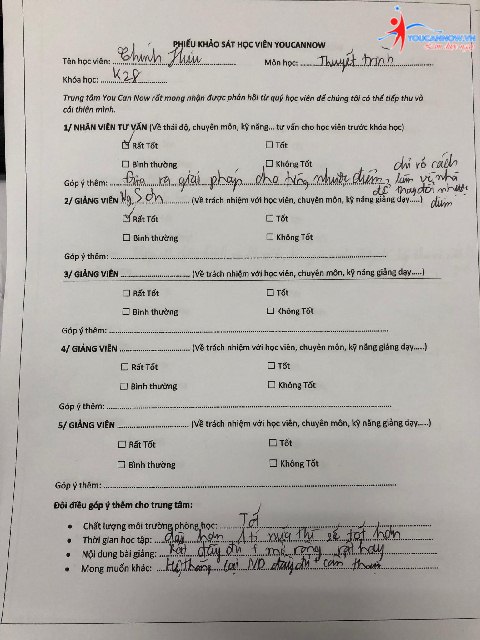 YOUCANNOW.VN
PHIẾU KHẢO SÁT HỌC VIÊN YOUCANNOW
Tên học viên: Chính Hiếu Môn học: Thuyết trình
Khóa học: K28
Trung tâm You Can Now rất mong nhận được phản hồi từ quý học viên để chúng tôi có thể tiếp thu và
cải thiện mình.
1/ NHÂN VIÊN TƯ VẤN (Về thái độ, chuyên môn, kỹ năng... tư vấn cho học viên trước khóa học)
☑ Rất Tốt ☐ Tốt
☐ Bình thường ☐ Không Tốt
Góp ý thêm: Đưa ra giải pháp cho từng nhược điểm, chỉ rõ cách
làm về nhà
để thay đổi nhược
điểm
2/ GIẢNG VIÊN Ng. Sơn (Về trách nhiệm với học viên, chuyên môn, kỹ năng giảng dạy.....)
☑ Rất Tốt ☐ Tốt
☐ Bình thường ☐ Không Tốt
Góp ý thêm:
3/ GIẢNG VIÊN (Về trách nhiệm với học viên, chuyên môn, kỹ năng giảng dạy.....)
☐ Rất Tốt ☐ Tốt
☐ Bình thường ☐ Không Tốt
Góp ý thêm:
4/ GIẢNG VIÊN (Về trách nhiệm với học viên, chuyên môn, kỹ năng giảng dạy.....)
☐ Rất Tốt ☐ Tốt
☐ Bình thường ☐ Không Tốt
Góp ý thêm:
5/ GIẢNG VIÊN (Về trách nhiệm với học viên, chuyên môn, kỹ năng giảng dạy.....)
☐ Rất Tốt ☐ Tốt
☐ Bình thường ☐ Không Tốt
Góp ý thêm:
Đôi điều góp ý thêm cho trung tâm:
• Chất lượng môi trường phòng học: Tốt
• Thời gian học tập: dài hơn 1 tí nữa thì sẽ tốt hơn
• Nội dung bài giảng: Rất đầy đủ mở rộng rất hay
• Mong muốn khác: Hệ thống lại ND đầy đủ cần